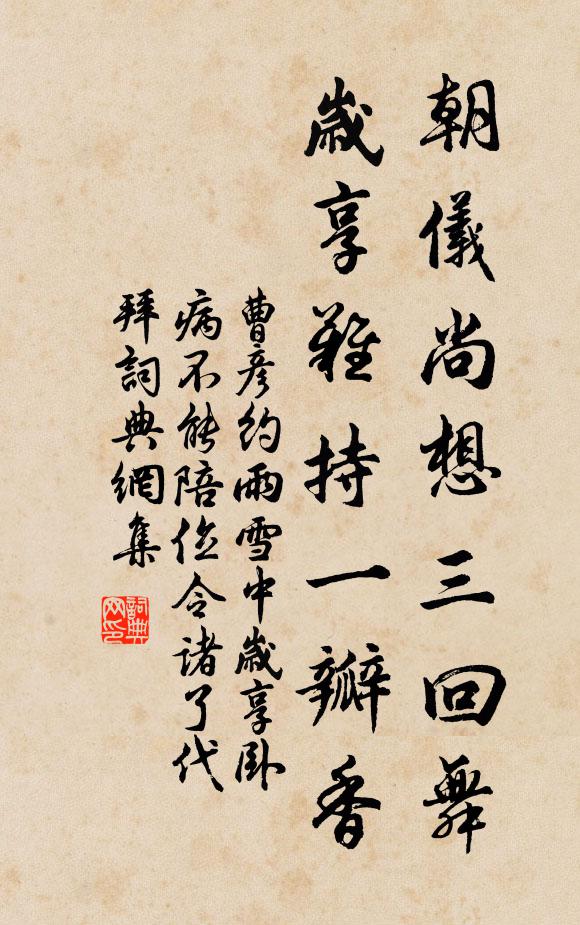 朝儀尚想三回舞
歲享難持一瓣香
曹彦約雨雪中歲享卧
病不能陪位令諸了代
拜詞典網集
詞典
网印